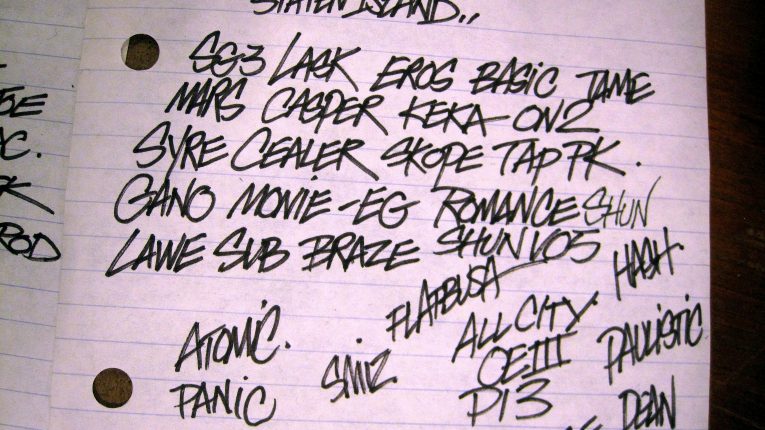 STATEN ISLAND..
SG3 LASK EROS BASIC TAME
MARS CASPER KEKA-ON2
SYRE CEALER SKOPE TAP PK.
GANO MOVIE-EG ROMANCE SHUN
LAWE SUB BRAZE SHUN VO5
FLATBUSA HASH.
ATOMIC. SMIZ ALL CITY.
OEIII PAULISTIC
PANIC PI3 DEAN
5E
C.
K
ROD